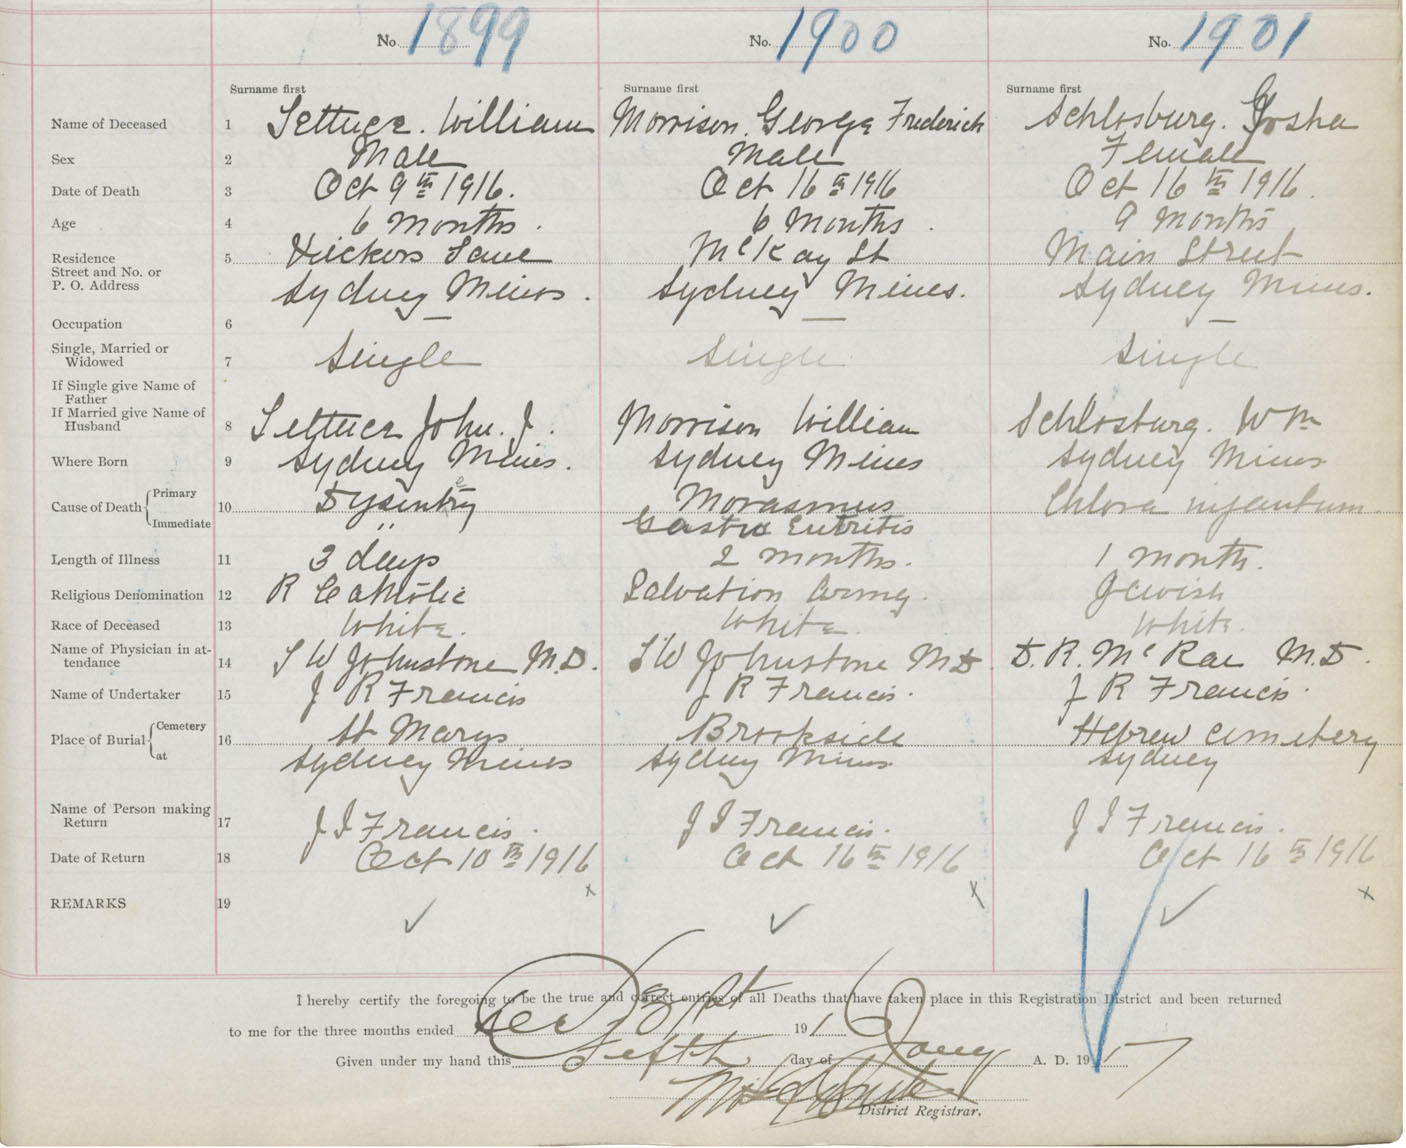 No. 1899 No. 1900 No. 1901
Surname first Surname first Surname first
Name of Deceased 1 Lettuce. William Morrison. George Frederick Schlosburg. Gosha
Sex 2 Male Male Female
Date of Death 3 Oct 9th 1916. Oct 16th 1916 Oct 16th 1916.
Age 4 6 Months. 6 Months. 9 Months
Residence 5 Vickers Lane McKay St Main Street
Street and No. or
P. O. Address Sydney Mines. Sydney Mines. Sydney Mines.
Occupation 6 — — —
Single, Married or
Widowed 7 Single Single Single
If Single give Name of
Father
If Married give Name of
Husband 8 Lettuce John. J. Morrison William Schlosburg. Wm
Where Born 9 Sydney Mines. Sydney Mines Sydney Mines
Cause of Death { Primary
Immediate 10 Dysentry Morasmus Chlora infantum.
" Gastro Entritis
Length of Illness 11 3 days 2 months. 1 month.
Religious Denomination 12 R Catholic Salvation Army. Jewish
Race of Deceased 13 White. White. White.
Name of Physician in at-
tendance 14 L W Johnstone M.D. L W Johnstone MD D. R. McRae M.D.
Name of Undertaker 15 J R Francis J R Francis. J R Francis.
Place of Burial { Cemetery
at 16 St Marys Brookside Hebrew Cemetery
Sydney Mines Sydney Mines Sydney
Name of Person making
Return 17 J I Francis. J I Francis. J I Francis.
Date of Return 18 Oct 10th 1916 Oct 16th 1916 Oct 16th 1916
REMARKS 19
I hereby certify the foregoing to be the true and correct entries of all Deaths that have taken place in this Registration District and been returned
to me for the three months ended Dec 31st 1916
Given under my hand this Fifth day of Jany A. D. 1917
District Registrar.